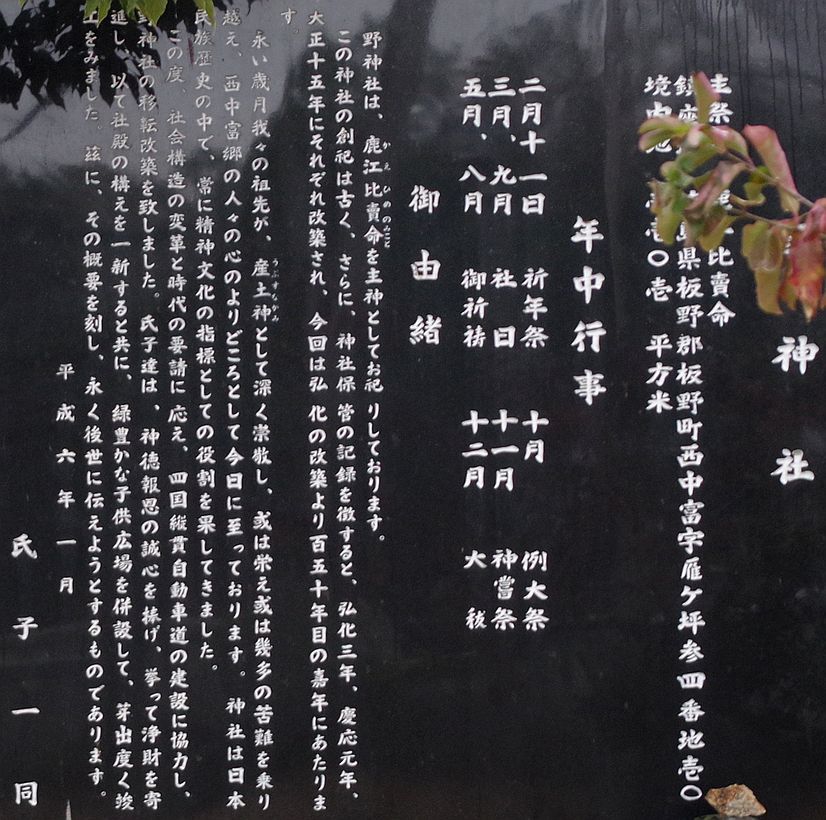 神社
主祭 比賣命
鎮座 県板野郡板野町西中富字雁ケ坪参四番地壱〇
境内地 壱〇壱 平方米
年中行事
二月十一日 祈年祭 十月 例大祭
三月、九月 社日 十一月 神嘗祭
五月、八月 御祈祷 十二月 大祓
御由緒
野神社は、鹿江比賣命を主神としてお祀りしております。
かえひめのみこと
この神社の創祀は古く、さらに、神社保管の記録を徴すると、弘化三年、慶応元年、
大正十五年にそれぞれ改築され、今回は弘化の改築より百五十年目の嘉年にあたりま
す。
永い歳月我々の祖先が、産土神として深く崇敬し、或は栄え或は幾多の苦難を乗り
うぶすながみ
越え、西中富郷の人々の心のよりどころとして今日に至っております。神社は日本
民族歴史の中で、常に精神文化の指標としての役割を果してきました。
この度、社会構造の変革と時代の要請に応え、四国縦貫自動車道の建設に協力し、
神社の移転改築を致しました。氏子達は、神徳報恩の誠心を捧げ、挙って浄財を寄
進し、以て社殿の構えを一新すると共に、緑豊かな子供広場を併設して、芽出度く竣
工をみました。茲に、その概要を刻し、永く後世に伝えようとするものであります。
平成六年一月
氏子一同